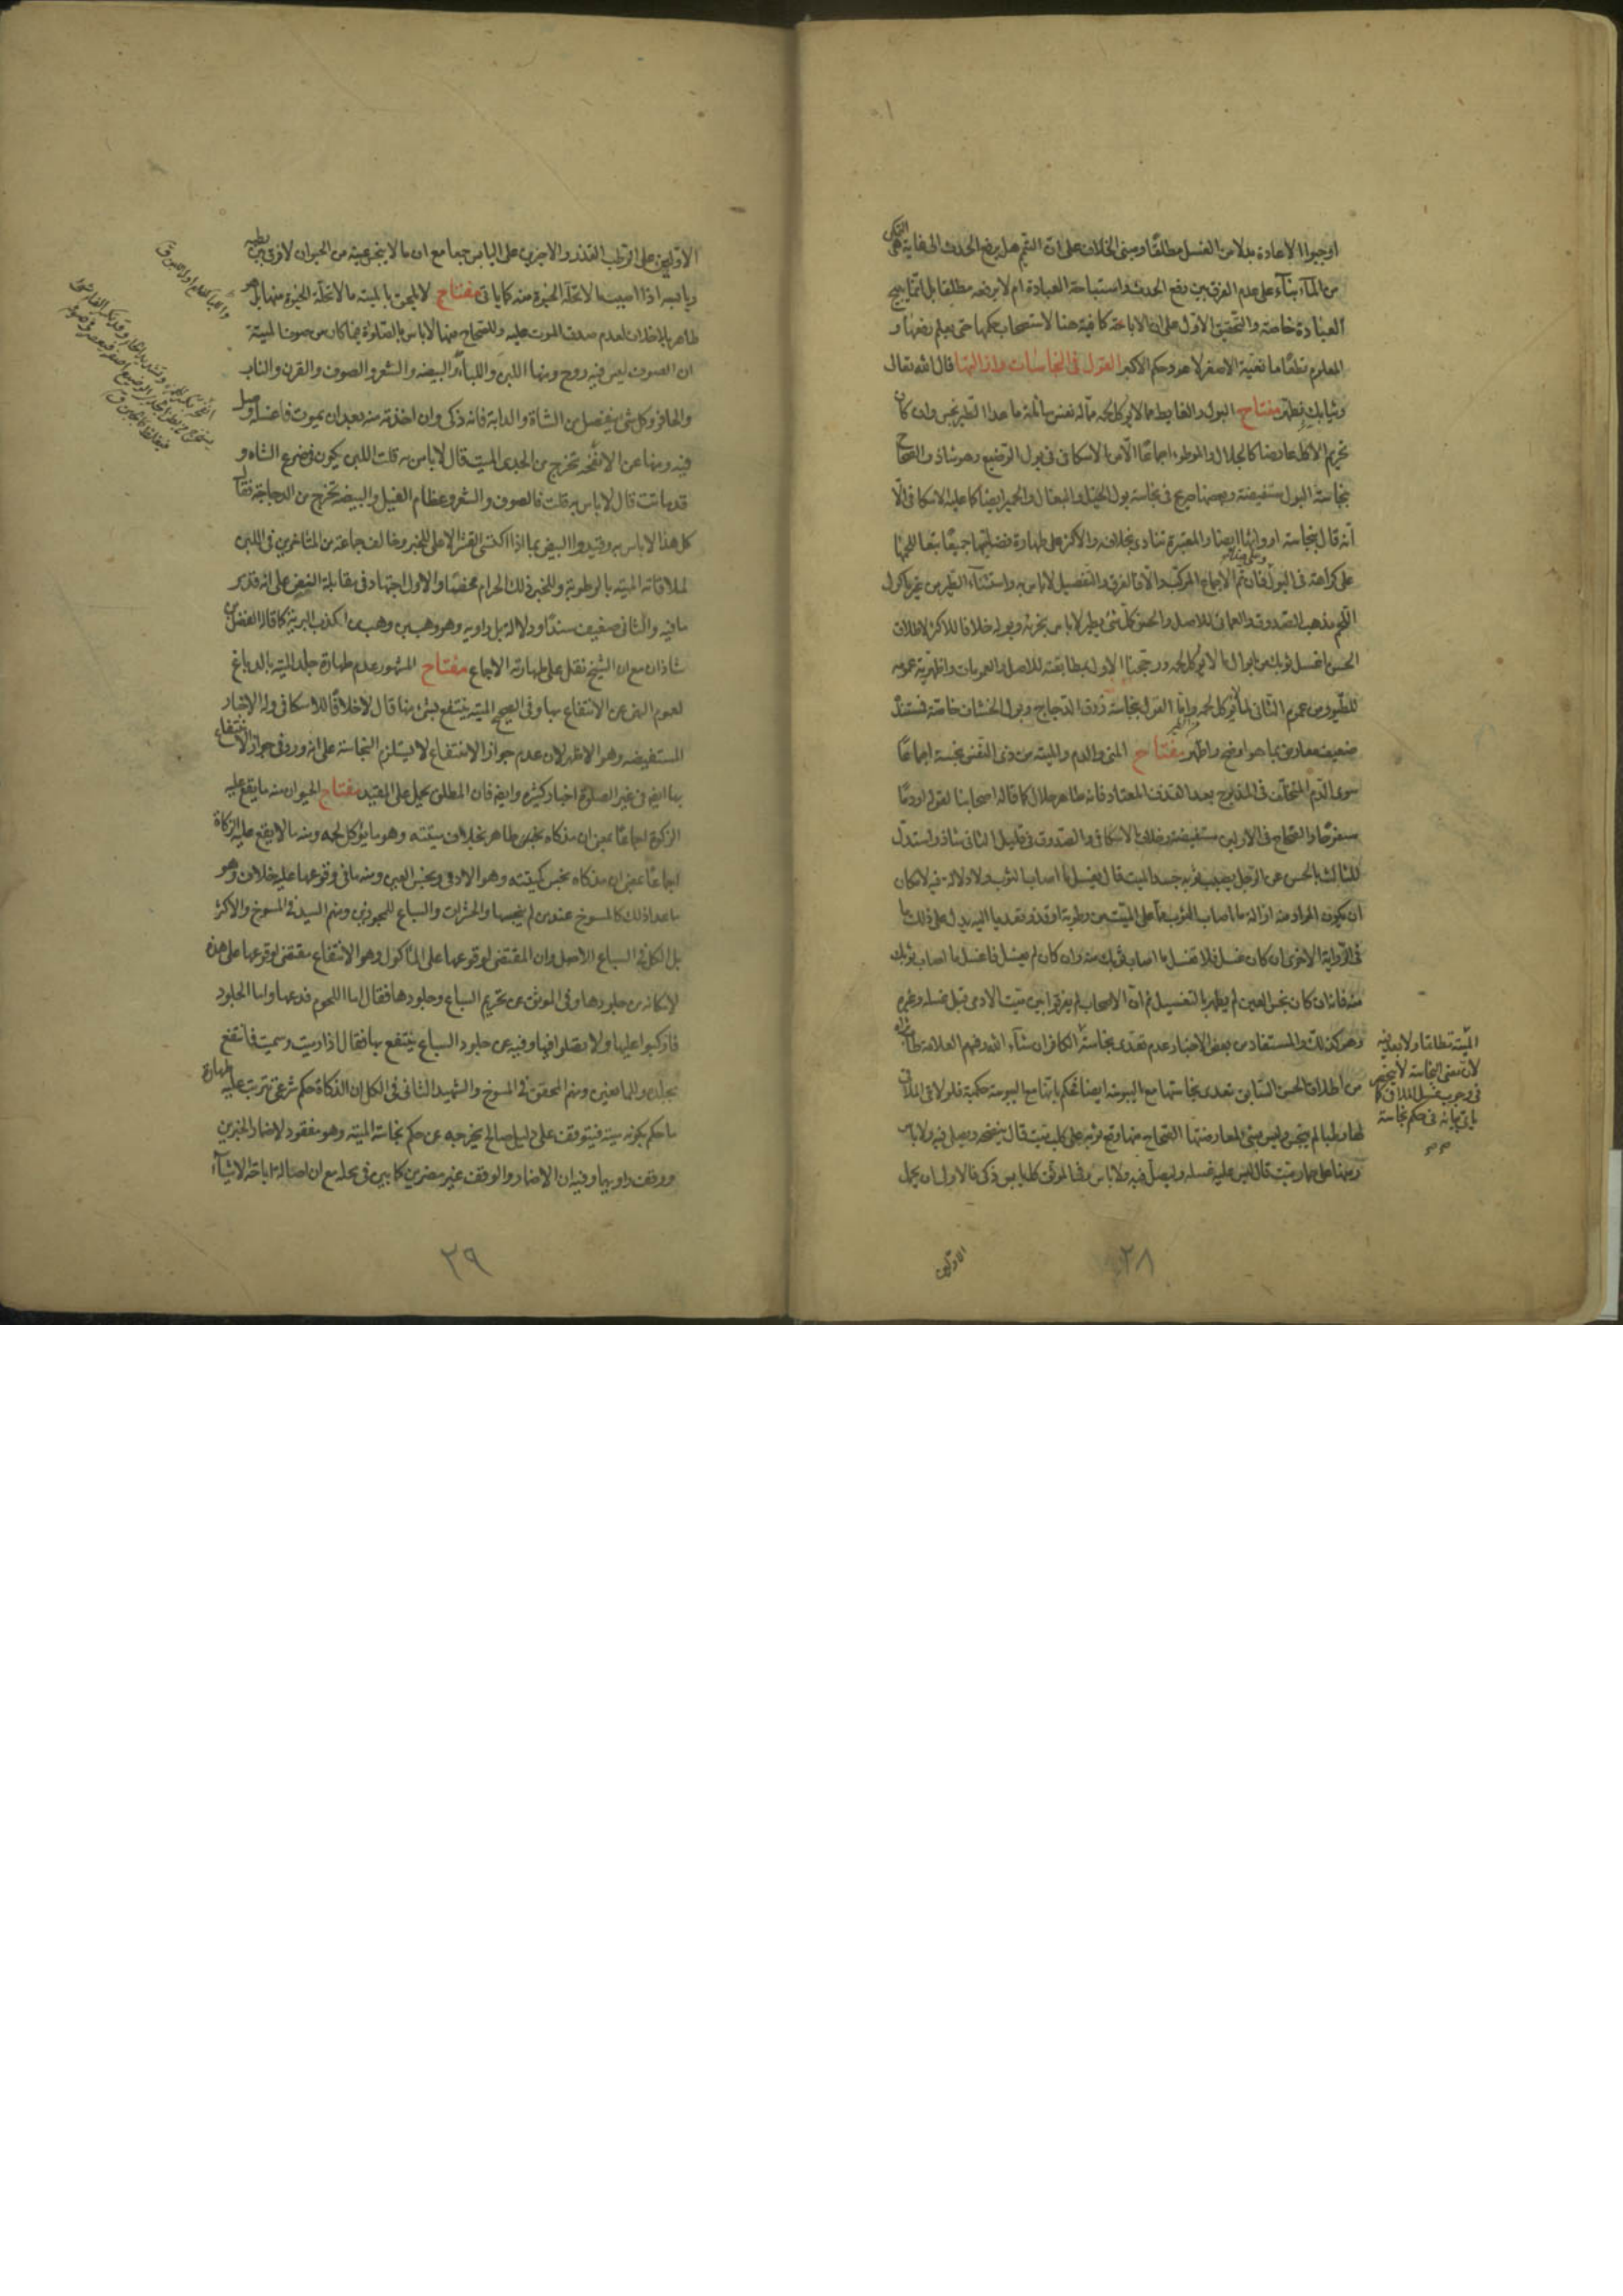 اوجبوا الاعادة بدلا من الغسل مطلقا ومبنى الخلاف على ان التيمم هل يرفع الحدث الى غاية هى التمكن
من الماء بناء على عدم الفرق بين رفع الحدث واستباحة العبادة ام لا يرفعه مطلقا بل انما يبيح
العبادة خاصة والتحقيق الاول على ان الاباحة كافية هنا لاستصحاب حكمها حتى يعلم رفعها و
المعلوم قطعا ما نعية الاصغر لا عود حكم الاكبر القول فى النجاسات وازالتها قال الله تعالى
وثيابك فطهر مفتاح البول والغايط مما لا يؤكل لحمه مما له نفس سائلة ما عدا الطير نجس وان كان
تحريم الاكل عارضا كالجلال والموطوء اجماعا الا من الاسكافى فى بول الرضيع وهو شاذ والصحاح
بنجاسة البول مستفيضة وبعضها صريح فى نجاسة بول الخيل والبغال والحمير ايضا كما عليه الاسكافى الا
انه قال بنجاسة ارواثها ايضا والمعتبرة تنادى بخلافه والاكثر على طهارة فضلتها جميعا تبعا للحمها
على كراهة فى البول فان تم الاجماع المركب والا فالفرق والتفصيل لا باس به واستثناء الطير من غير ماكول
اللحم مذهب الصدوق والعمانى للاصل والحسن كل شئ يطير لا باس بخرئه وبوله خلافا للاكثر لاطلاق
الحسن اغسل ثوبك من ابوال ما لا يؤكل لحمه ورجحنا الاول بمطابقته للاصل والعمومات واظهرية عمومه
للطيور من عموم الثانى لما لا يؤكل لحمه واما القول بنجاسة ذرق الدجاج وبول الخشاف خاصة فمستنده
ضعيف معارض بما هو اوضح واظهر مفتاح المنى والدم والميتة من ذى النفس نجسة اجماعا
سوى الدم المتخلف فى المذبوح بعد القذف المعتاد فانه طاهر حلال كما قاله اصحابنا لقوله او دما
مسفوحا والصحاح فى الاولين مستفيضة وخلاف الاسكافى والصدوق فى قليل الثانى شاذ واستدل
للثالث بالحسن عن الرجل يصيب ثوبه جسد الميت قال يغسل ما اصاب الثوب ولا دلالة فيه لامكان
ان يكون المراد منه ازالة ما اصاب الثوب مما على الميت من رطوبة او قذر تعديا اليه يدل على ذلك ما
فى الرواية الاخرى ان كان غسل فلا تغسل ما اصاب ثوبك منه وان كان لم يغسل فاغسل ما اصاب ثوبك
منه فانه ان كان نجس العين لم يطهر بالتغسيل ثم ان الاصحاب لم يفرقوا بين ميت الادمى قبل غسله وغيره
وهو كذلك والمستفاد من بعض الاخبار عدم تعدى نجاسته الكافر ان شاء الله وفهم العلامة طاب ثراه
من اطلاق الحسن السابق تعدى نجاستها مع اليبوسة ايضا فحكم بانها مع اليبوسة حكمية فلو لاقى الملاقى
لها رطبا لم ينجس وليس بشئ لمعارضتها الصحاح منها وقع ثوبه على كلب ميت قال ينضحه ويصلى فيه ولا باس
ومنها على حمار ميت قال ليس عليه غسله وليصل فيه ولا باس وفى الموثق كل يابس ذكى فالاولى ان يحمل
الاولين
الميتة مطلقا ولا بعد فيه
لان معنى النجاسة لا ينحصر
فى وجوب غسل الملاقى كما
ياتى بيانه فى حكم نجاسة
٢٨
الاولين على الرطب القذر والاخرين على اليابس جمعا مع ان ما لا ينجس عينه من الحيوان لا فرق بين رطبه
ويابسه اذا اصيب ما لا تحله الحيوة منه كما ياتى مفتاح لا يلحق بالميتة ما لا تحله الحيوة منها بل هو
طاهر بلا خلاف لعدم صدق الموت عليه وللصحاح منها لا باس بالصلوة فيما كان من صوف الميتة
ان الصوف ليس فيه روح ومنها اللبن واللباء والبيضة والشعر والصوف والقرن والناب
والحافر وكل شئ يفصل من الشاة والدابة فانه ذكى وان اخذته منه بعد ان يموت فاغسله وصل
فيه ومنها عن الانفحة تخرج من الجدى الميت قال لا باس به قلت اللبن يكون فى ضرع الشاه و
قد ماتت قال لا باس به قلت فالصوف والشعر وعظام الفيل والبيضة تخرج من الدجاجة فقال
كل هذا لا باس به وقيدوا البيض بما اذا اكتسى القشر الاعلى للخبر وخالف جماعة من المتاخرين فى اللبن
لملاقاته الميتة بالرطوبة وللخبر ذلك الحرام محضا والاول اجتهاد فى مقابلة النص على انه قد مر
ما فيه والثانى ضعيف سندا ودلالة بل راويه وهو وهب بن وهب من اكذب البرية كما قاله الفضل بن
شاذان مع ان الشيخ نقل على طهارته الاجماع مفتاح المشهور عدم طهارة جلد الميتة بالدباغ
لعموم النهى عن الانتفاع بها وفى الصحيح الميتة ينتفع بشئ منها قال لا خلافا للاسكافى وله الاخبار
المستفيضة وهو الاظهر لان عدم جواز الانتفاع لا يستلزم النجاسة على انه ورد فى جواز الانتفاع
بها ايضا فى غير الصلوة اخبار كثيرة وايضا فان المطلق يحمل على المقيد مفتاح الحيوان منه ما يقع عليه
الزكوة اجماعا بمعنى ان مذكاه نجس طاهر بخلاف ميتته وهو ما يؤكل لحمه ومنه ما لا يقع عليه الزكاة
اجماعا بمعنى ان مذكاه نجس كميتته وهو الادمى ونجس العين ومنه ما فى وقوعها عليه خلاف وهو
ما عدا ذلك كالمسوخ عند من لم ينجسها والحشرات والسباع للمجوزين ومنهم السيد فى المسوخ والاكثر
بل الكل فى السباع الاصل وان المقتضى لوقوعها على الماكول وهو الانتفاع مقتض لوقوعها على هذه
لامكانه من جلودها وفى الموثق عن تحريم السباع وجلودها فقال اما اللحوم فدعها واما الجلود
فاركبوا عليها ولا تصلوا فيها وفيه عن جلود السباع ينتفع بها فقال اذا رميت وسميت فانتفع
بجلده وللمانعين ومنهم المحقق فى المسوخ والشهيد الثانى فى الكل ان الذكاة حكم شرعى يترتب عليه طهارة
ما حكم بكونه ميتة فيتوقف على دليل صالح يخرجه عن حكم نجاسة الميتة وهو مفقود لاضمار الخبرين
ووقف راويهما وفيه ان الاضمار والوقف غير مضرين كما بين فى محله مع ان اصالة اباحة الاشياء
٢٩